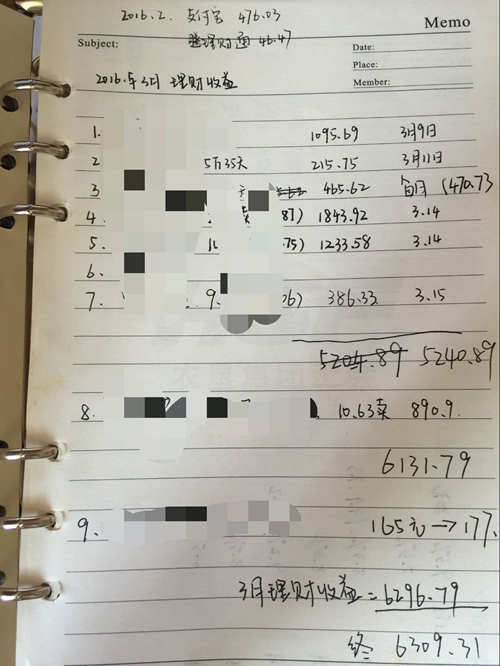 2016.2. 支付宝 476.03
Memo
理财通 46.47
Subject:
Date:
Place:
Member:
2016年3月 理财收益
1. 1095.69 3月9日
2 5万35天 215.75 3月11日
3 465.62 每月 (470.73
4. 87) 1843.92 3.14
5. 75) 1233.58 3.14
6.
7. 9. 06) 386.33 3.15
5204.89 5240.89
8. 10.63卖 890.9
6131.79
9. 165元→177.
3月理财收益=6296.79
终 6309.31